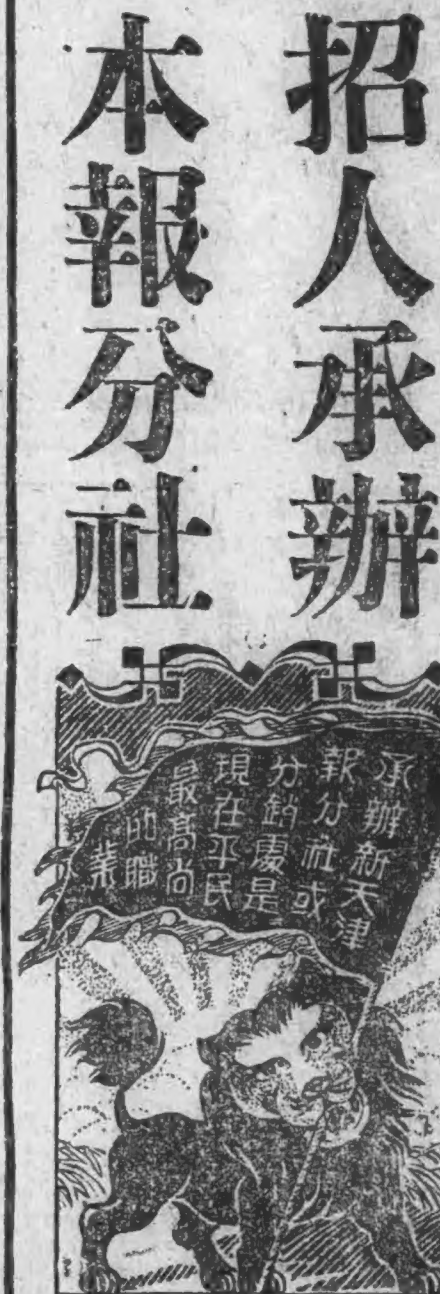 招人承辦
本報分社
承辦新天津
報分社或
分銷處是
現在平民
最高尚
的職
業